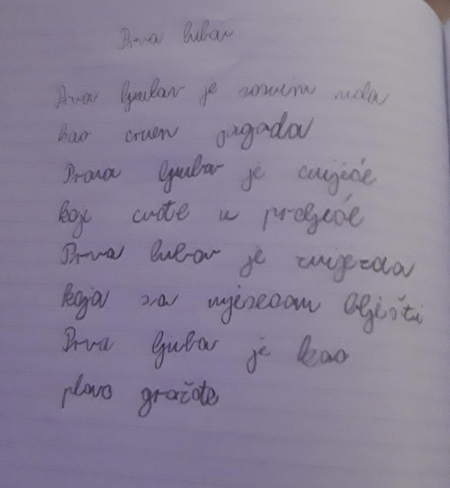 Prva lubav
Prva ljubav je sasvim luda
kao crven jagada
Prava ljubav je cvijeće
koje cvate u proljeće
Prva lubav je zvijezda
koja sa mjesecom blješti
Prva ljubav je kao
plavo grožđe